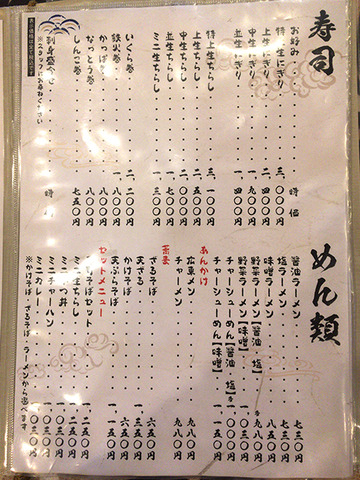 寿司
お好み 時価
特上生にぎり 三、〇〇〇円
上生にぎり 二、四〇〇円
中生にぎり 一、九〇〇円
並生にぎり 一、四〇〇円
特上生ちらし 三、一〇〇円
上生ちらし 二、五〇〇円
中生ちらし 二、〇〇〇円
並生ちらし 一、七〇〇円
ミニ生ちらし 九〇〇円
いくら巻 二、二〇〇円
鉄火巻 一、八〇〇円
かっぱ巻 八〇〇円
なっとう巻 八〇〇円
しんこ巻 七五〇円
刺身盛合せ 時価
※スタッフにお尋ねください
めん類
醤油ラーメン 七三〇円
塩ラーメン 七三〇円
味噌ラーメン 八五〇円
野菜ラーメン【醤油 塩】 各九五〇円
野菜ラーメン【味噌】 一、〇〇〇円
チャーシューめん【醤油 塩】
チャーシューめん【味噌】
あんかけ
広東メン 九八〇円
チャーメン 九八〇円
蕎麦
ざるそば 六五〇円
天ざる
かけそば 六五〇円
天ぷらそば
セットメニュー
ミニ生ちらし
ミニカツ丼
ミニチャーハン
ミニカレー
※かけそば・ざるそば・ラーメンから選べます